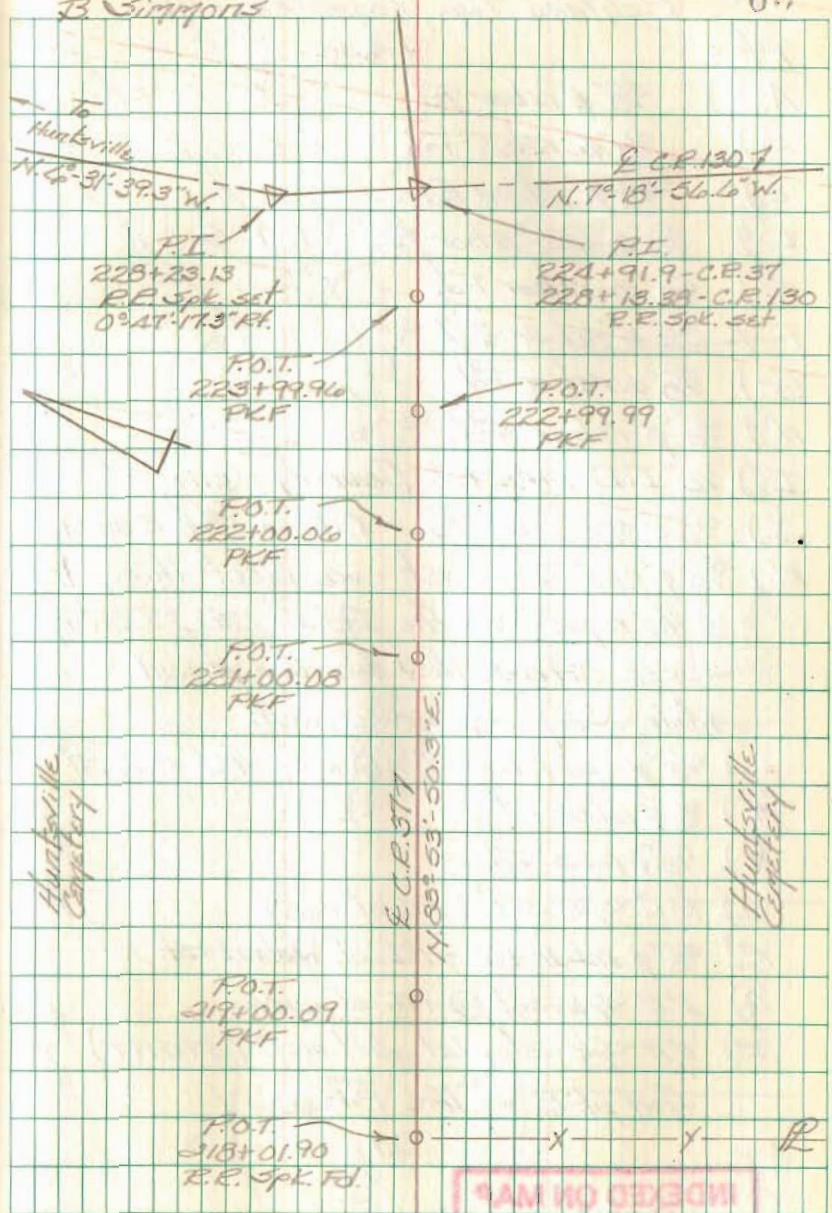 B. Simmons
To
Huntsville
N. 6°-31'-39.3" W.
℄ C.R. 130 7
N. 7°-18'-56.6" W.
P.I.
228+23.13
R.R. Spk. set
0°47'17.3" Rt.
P.I.
224+91.9 - C.R. 37
228+13.38 - C.R. 130
R.R. Spk. set
P.O.T.
223+99.96
PKF
P.O.T.
222+99.99
PKF
P.O.T.
222+00.06
PKF
P.O.T.
221+00.08
PKF
Huntsville
Cemetery
℄ C.R. 37 7
N. 83°-53'-50.3" E.
Huntsville
Cemetery
P.O.T.
219+00.09
PKF
P.O.T.
218+01.90
R.R. Spk. Fd.
X X PL
INDEXED ON MAP